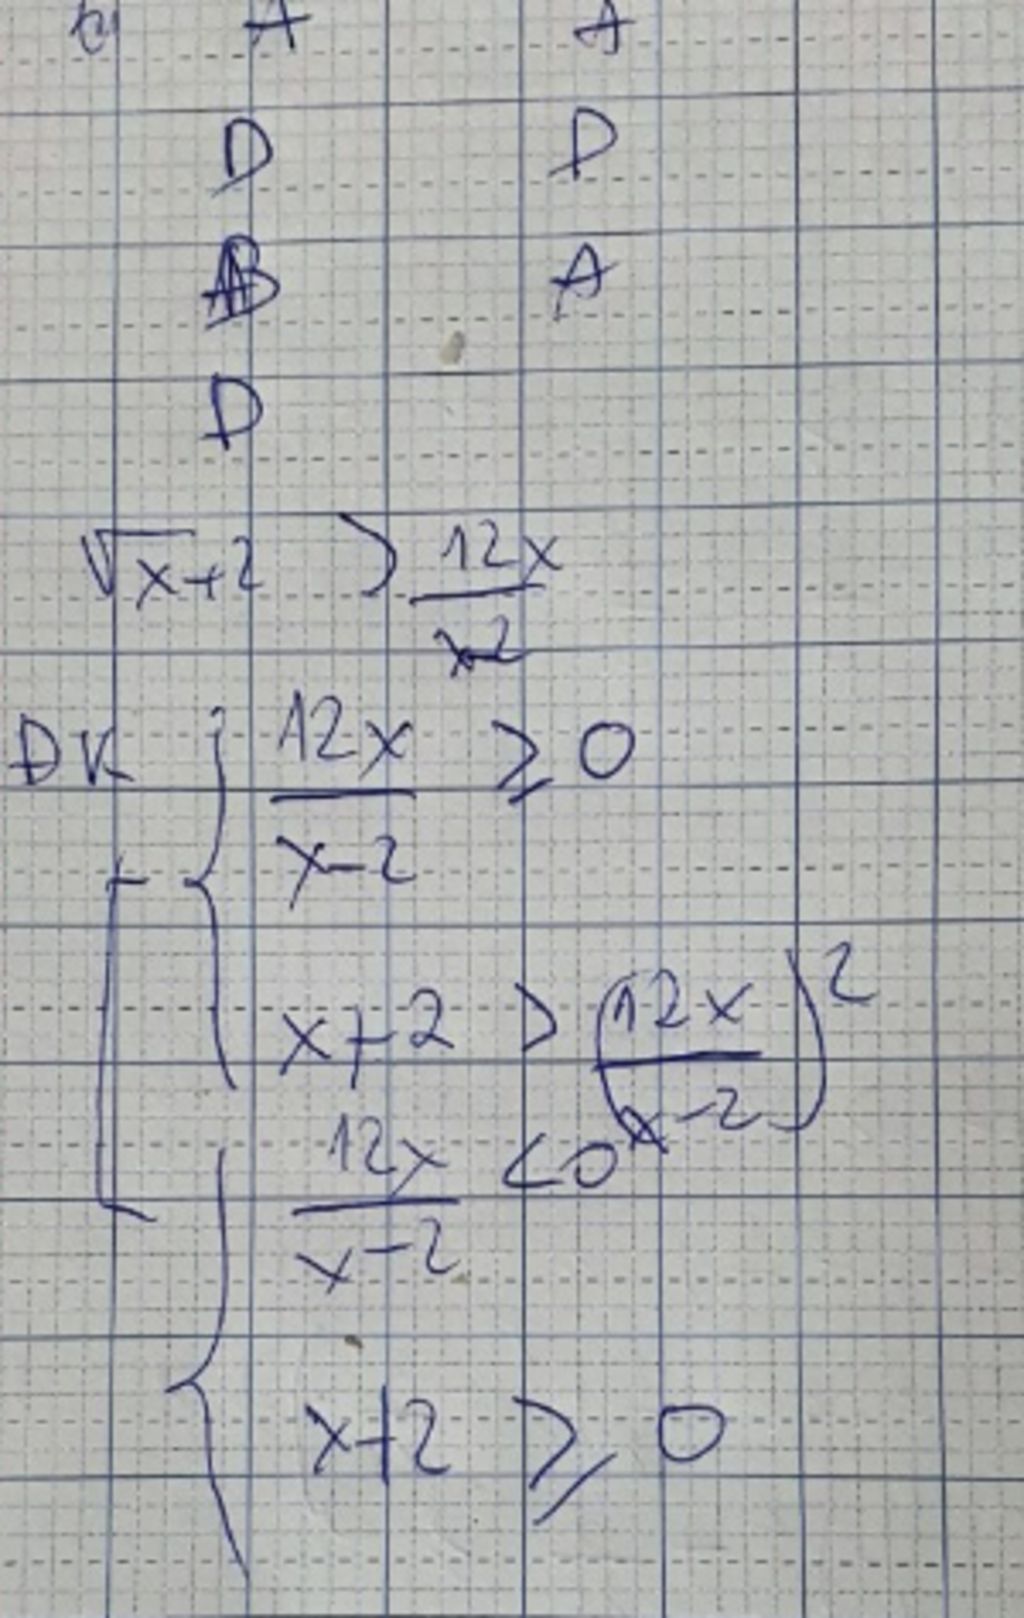 A A
D D
B A
D
√x+2 > 12x/x-2
ĐK { 12x/x-2 ≥ 0
x+2 > (12x/x-2)²
{ 12x/x-2 < 0
x+2 ≥ 0